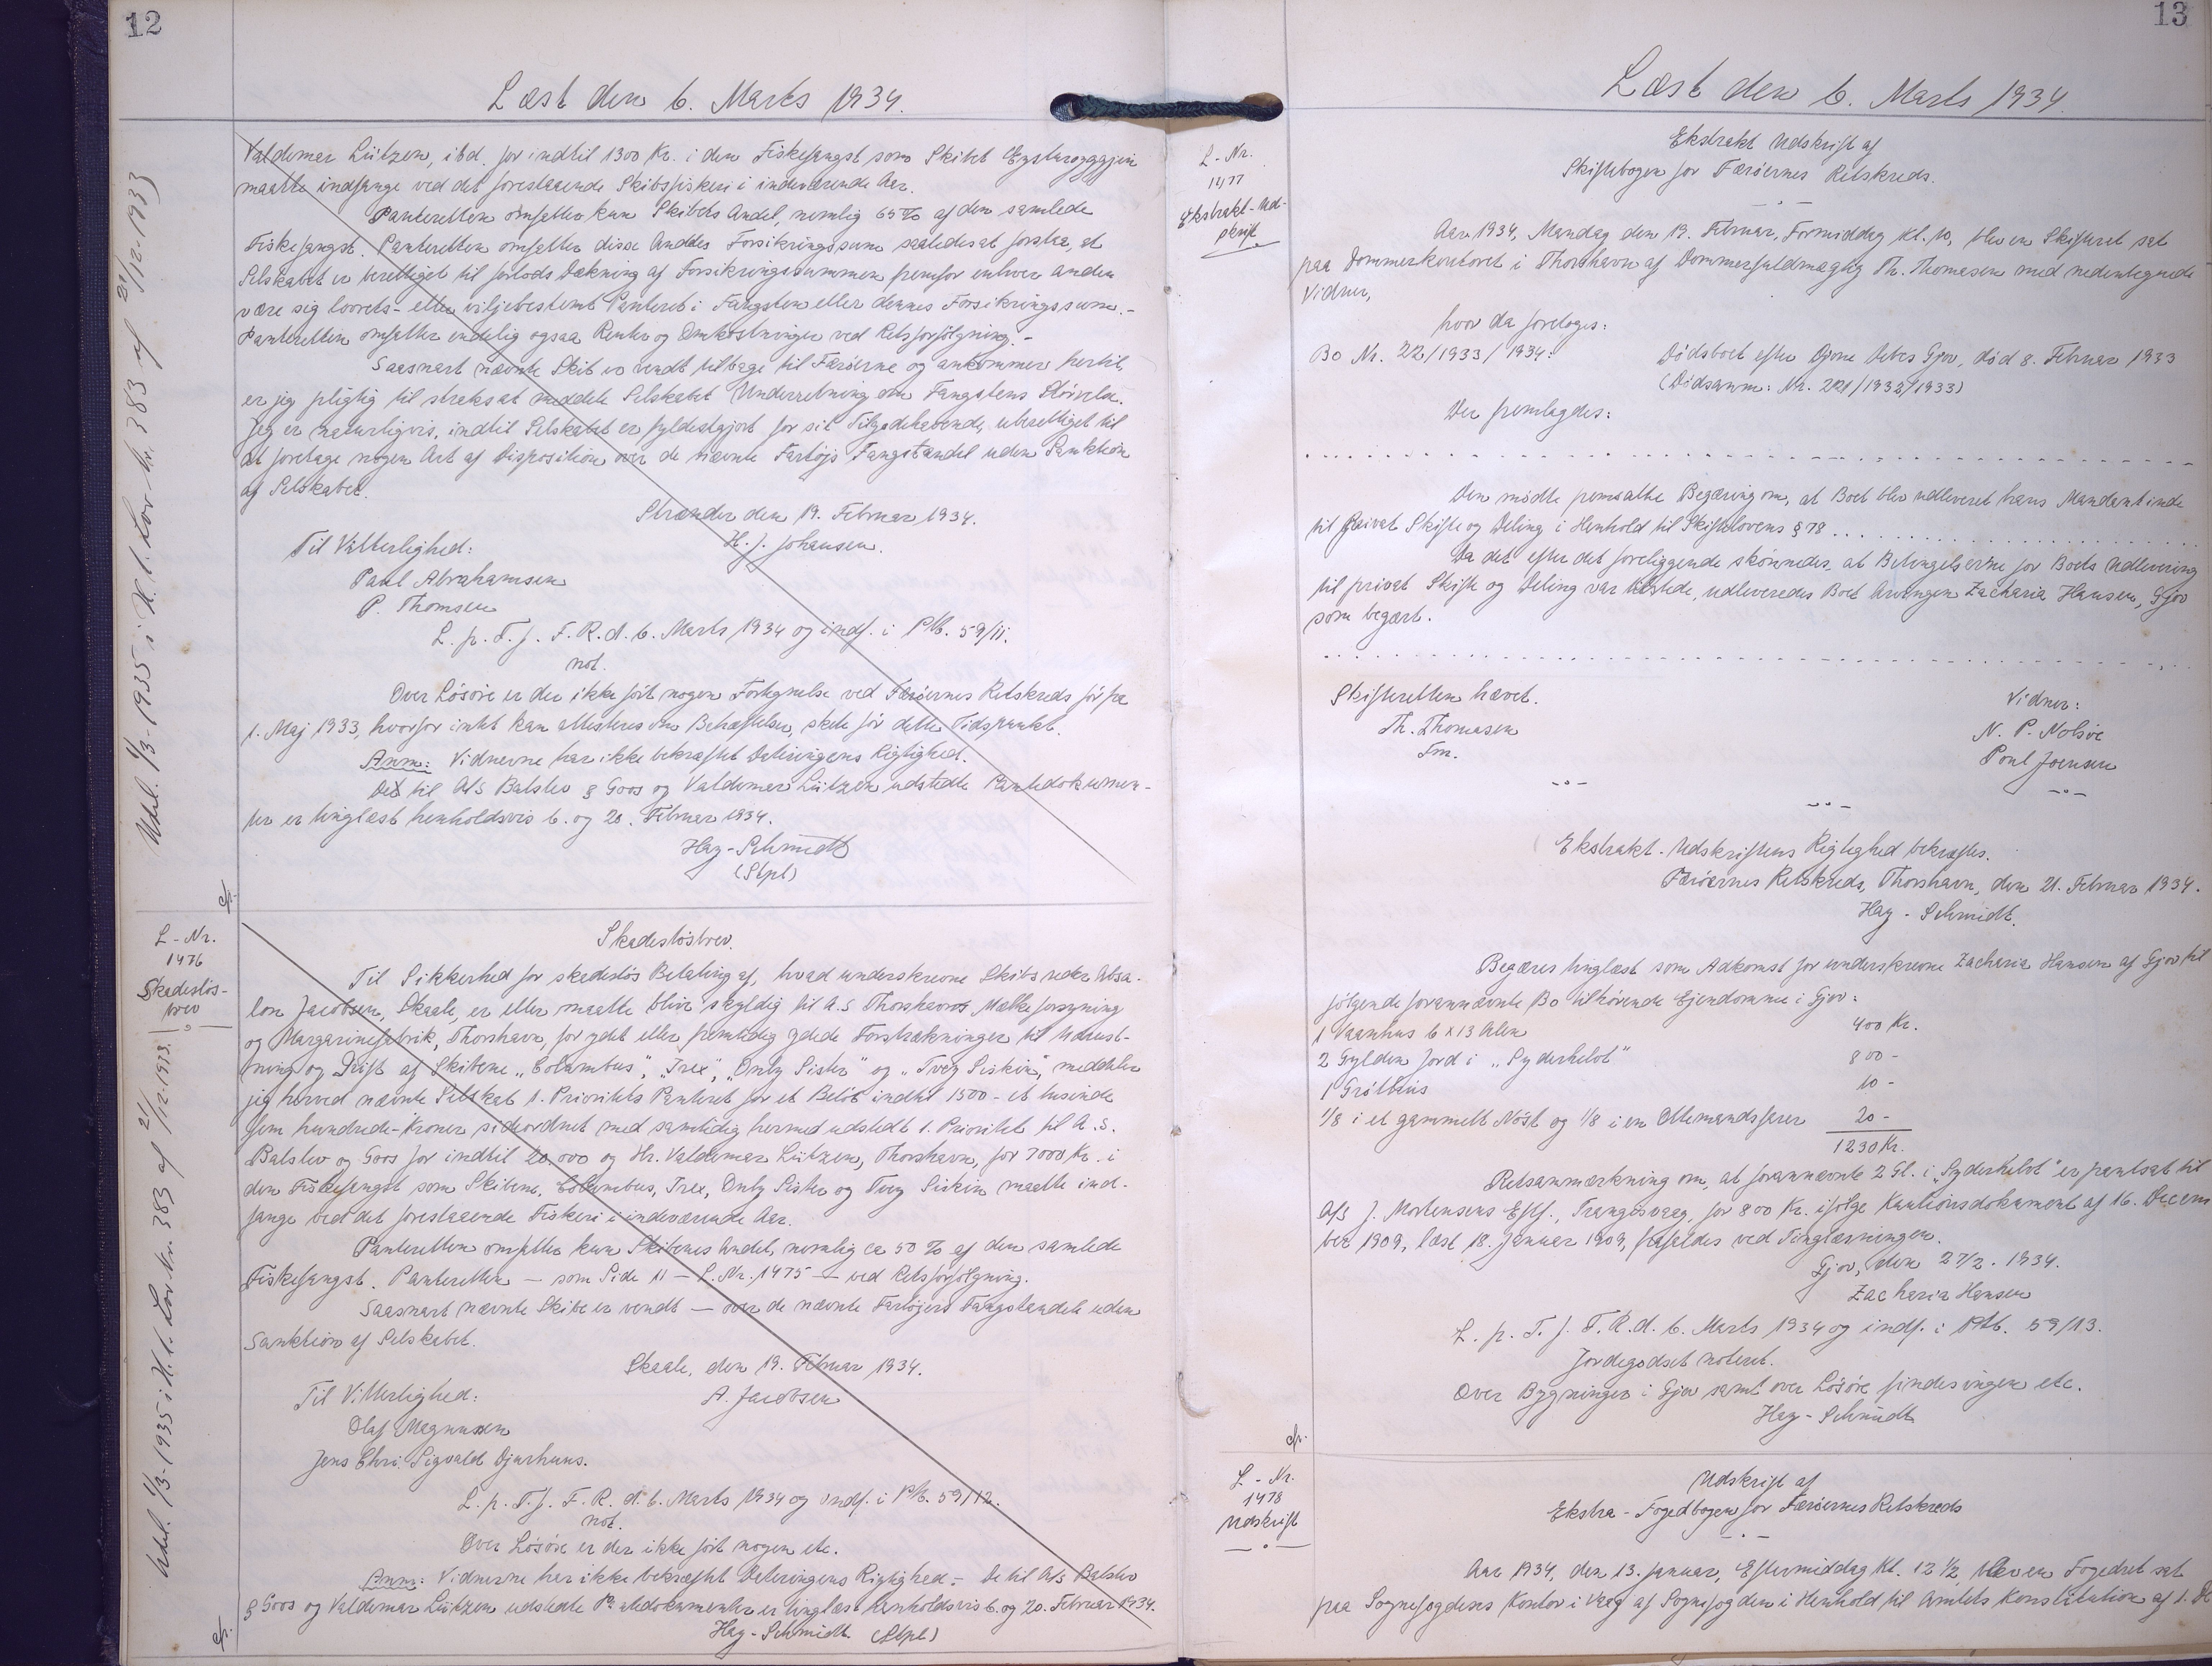 12
Læst den 6. Marts 1934.
Valdemar Lützen, ibd. for indtil 1300 Kr. i den Fiskefangst som Skibet Eysturoyggjin
maatte indfange ved det forestaaende Skibsfiskeri i indeværende Aar.
Panteretten omfatter kun Skibets Andel, nemlig 65% af den samlede
Fiskefangst. Panteretten omfatter disse Andeles Forsikringssum saaledes at forstaa, at
Selskabet er berettiget til forlods Dækning af Forsikringssummen fremfor enhver anden
være sig lovrets- eller viljebestemt Panteret i Fangsten eller dennes Forsikringssum.-
Panteretten omfatter endelig ogsaa Renter og Omkostninger ved Retsforfölgning.-
Saasnart nævnte Skib er vendt tilbage til Færöerne og ankommer hertil,
er jeg pligtig til straks at meddele Selskabet Underretning om Fangstens Störrelse.
Jeg er naturligvis, indtil Selskabet er fyldestgjort for sit Tilgodehavende, uberettiget til
at foretage nogen Art af Disposition over de nævnte Fartöjs Fangstandel uden Sanktion
af Selskabet.
Strænder den 19. Februar 1934.
Til Vitterlighed: H. J. Johansen.
Paul Abrahamsen
P. Thomsen
L. p. T. f. F. R. d. 6. Marts 1934 og indf. i PM. 59/11.
not.
Over Lösöre er der ikke fört nogen Fortegnelse ved Færöernes Retskreds för fra
1. Maj 1933, hvorfor intet kan attesteres om Behæftelser, skete för dette Tidspunkt.
Anm: Vidnerne har ikke bekræftet Dateringens Rigtighed.
De til A/S Balslev & Goos og Valdemar Lützen udstedte Pantedokumen-
ter er tinglæst henholdsvis 6. og 20. Februar 1934.
Hag-Schmidt
(Stpl)
Udsl. 1/3-1935 i H. t. Lov Nr. 383 af 21/12-1933
cfr.
L-Nr.
1476
Skadeslös-
brev
Skadeslösbrev.
Til Sikkerhed for skadeslös Betaling af, hvad underskrevne Skibsreder Absa-
lon Jacobsen, Skaale, er eller maatte blive skyldig til A.S Thorshavns Mælkeforsyning
og Margarinefabrik, Thorshavn, for ydet eller fremtidig ydede Forstrækninger til Udrust-
ning og Drift af Skibene „Columbus“, „Trex“, „Only Sister“ og „Tvey Siskin“, meddeler
jeg herved nævnte Selskab 1. Prioritets Panteret for et Belöb indtil 1500 - et tusinde
fem hundrede - Kroner sideordnet med samtidig hermed udstedt 1. Prioritet til A.S.
Balslev og Goos for indtil 20,000 og Hr. Valdemar Lützen, Thorshavn, for 7000 Kr. i
den Fiskefangst som Skibene, Columbus, Trex, Only Sister og Tvey Siskin maatte ind-
fange ved det forestaaende Fiskeri i indeværende Aar.
Panteretten omfatter kun Skibenes Andel, nemlig ca 50 % af den samlede
Fiskefangst. Panteretten — som Side 11 — L. Nr. 1475 — ved Retsforfölgning.
Saasnart nævnte Skibe er vendt — over de nævnte Fartöjers Fangstandele uden
Sanktion af Selskabet.
Skaale, den 19. Februar 1934.
Til Vitterlighed: A. Jacobsen
Olaf Magnussen
Jens Chri. Sigvald Djurhuus.
L. p. T. f. F. R. d. 6. Marts 1934 og indf. i PM. 59/12.
not.
Over Lösöre er der ikke fört nogen etc.
Anm: Vidnerne har ikke bekræftet Dateringens Rigtighed.- De til A/S Balslev
& Goos og Valdemar Lützen udstedte Pantedokumenter er tinglæst henholdsvis 6. og 20. Februar 1934.
Hag-Schmidt (Stpl)
Udsl. 1/3-1935 i H. t. Lov Nr. 383 af 21/12-1933.
cfr.
13
Læst den 6. Marts 1934
L-Nr.
1477
Ekstrakt-Ud-
skrift
Ekstrakt Udskrift af
Skiftebogen for Færöernes Retskreds.
Aar 1934, Mandag den 19. Februar, Formiddag Kl. 10, blev en Skifteret sat
paa Dommerkontoret i Thorshavn af Dommerfuldmægtig Th. Thomasen med nedentegnede
Vidner,
hvor da foretoges:
Bo Nr. 22/1933/1934: Dödsboet efter Djone Debes Gjov, död 8. Februar 1933
(Dödsanm: Nr. 221/1932/1933)
Der fremlagdes:
Den mödte fremsatte Begæring om, at Boet blev udleveret hans Mandantinde
til privat Skifte og Deling i Henhold til Skiftelovens § 78 ...
Da det efter det foreliggende skönnedes, at Betingelserne for Boets Udlevering
til privat Skifte og Deling var tilstede, udleveredes Boet Arvingen Zacharia Hansen, Gjov
som begært.
Skifteretten hævet. Vidner:
Th. Thomasen N. P. Nolsöe
Fm. Poul Joensen
Ekstrakt-Udskriftens Rigtighed bekræftes.
Færöernes Retskreds, Thorshavn, den 21. Februar 1934.
Hag-Schmidt.
Begæres tinglæst som Adkomst for underskrevne Zacharia Hansen af Gjov til
fölgende forannævnte Bo tilhörende Ejendomme i Gjov:
1 Vaanhus 6 x 13 Alen 400 Kr.
2 Gylden Jord i „Syderhelvt“ 800 -
1 Gröthus 10 -
1/8 i et gammelt Nöst og 1/8 i en Ottemandsfarer 20 -
1230 Kr.
Retsanmærkning om, at forannævnte 2 Gl. i „Syderhelvt“ er pantsat til
A/S J. Mortensens Eftf., Trangisvaag, for 800 Kr. ifölge Kautionsdokument af 16. Decem
ber 1909, læst 18. Januar 1909, frafaldes ved Tinglæsningen.
Gjov, den 27/2. 1934.
Zacharia Hansen
L. p. T. f. F. R. d. 6. Marts 1934 og indf. i PM. 59/13.
Jordegodset noteret.
Over Bygninger i Gjov samt over Lösöre findes ingen etc.
Hag-Schmidt
cfr.
L-Nr.
1478
Udskrift
Udskrift af
Ekstra-Fogedbogen for Færöernes Retskreds
Aar 1934, den 13. Januar, Eftermiddag Kl. 12 1/2, blev en Fogedret sat
paa Sognefogdens Kontor i Vaag af Sognefogden i Henhold til Amtets Konstitution af 1.